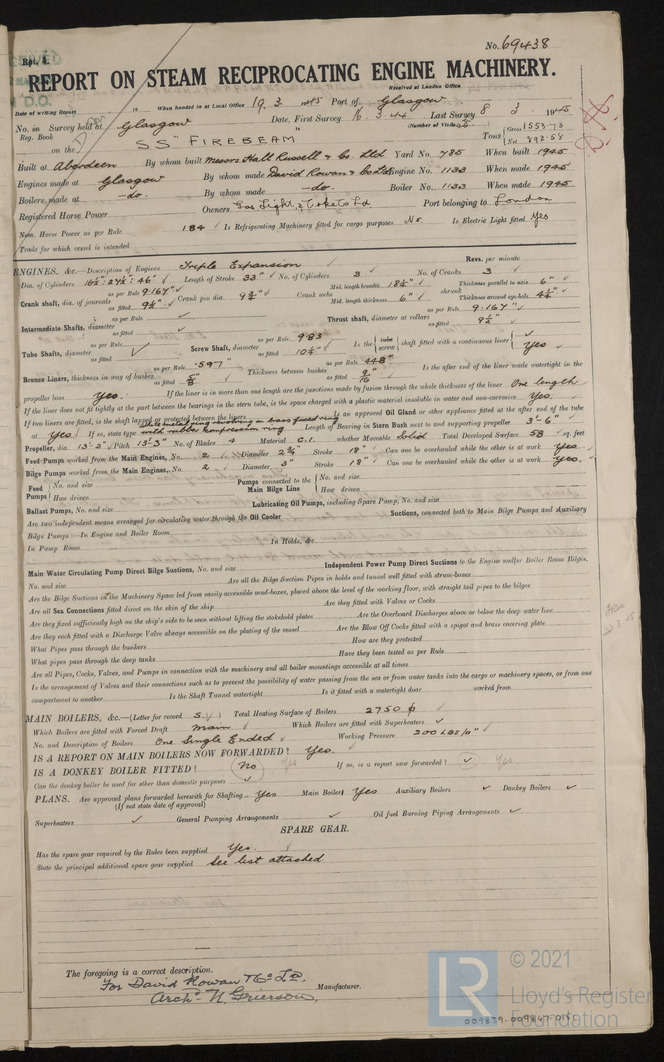 No. 69438
Rpt. 4.
REPORT ON STEAM RECIPROCATING ENGINE MACHINERY.
Received at London Office
Date of writing Report 19 When handed in at Local Office 19. 3. 1945 Port of Glasgow
No. in Survey held at Glasgow Date, First Survey 16. 3. 44 Last Survey 8 3. 1945
Reg. Book (Number of Visits
on the SS "FIREBEAM" Tons Gross 1553.73 Net 892.58
Built at Aberdeen By whom built Messrs Hall Russell & Co. Ltd Yard No. 785 When built 1945
Engines made at Glasgow By whom made David Rowan & Co Ltd Engine No. 1133 When made 1945
Boilers made at -do- By whom made -do- Boiler No. 1133 When made 1945
Registered Horse Power Owners Gas Light & Coke Co Ld Port belonging to London
Nom. Horse Power as per Rule 184 Is Refrigerating Machinery fitted for cargo purposes No. Is Electric Light fitted Yes
Trade for which vessel is intended
ENGINES, &c.—Description of Engines Triple Expansion Revs. per minute
Dia. of Cylinders 16½": 27½": 46" Length of Stroke 33" No. of Cylinders 3 No. of Cranks 3
Crank shaft, dia. of journals as per Rule 9.167" as fitted 9½" Crank pin dia. 9¾" Crank webs Mid. length breadth 18¼" Mid. length thickness 6" shrunk Thickness parallel to axis 6" Thickness around eyehole 4¼"
Intermediate Shafts, diameter as per Rule as fitted Thrust shaft, diameter at collars as per Rule 9.167" as fitted 9½"
Tube Shafts, diameter as per Rule as fitted Screw Shaft, diameter as per Rule 9.83 as fitted 10¼" Is the tube screw shaft fitted with a continuous liner Yes
Bronze Liners, thickness in way of bushes as per Rule .597" as fitted 5/8" Thickness between bushes as per Rule .448" as fitted 9/16" Is the after end of the liner made watertight in the
propeller boss Yes. If the liner is in more than one length are the junctions made by fusion through the whole thickness of the liner One length
If the liner does not fit tightly at the part between the bearings in the stern tube, is the space charged with a plastic material insoluble in water and non-corrosive Yes.
If two liners are fitted, is the shaft lapped or protected between the liners Is an approved Oil Gland or other appliance fitted at the after end of the tube
at Yes If so, state type with rubber compression ring Length of Bearing in Stern Bush next to and supporting propeller 3'-6"
Propeller, dia. 13'-3" Pitch 13'-3" No. of Blades 4 Material C.I. whether Moveable Solid Total Developed Surface 58 sq. feet
Feed Pumps worked from the Main Engines, No. 2 Diameter 2¾" Stroke 18" Can one be overhauled while the other is at work Yes
Bilge Pumps worked from the Main Engines, No. 2 Diameter 3" Stroke 18" Can one be overhauled while the other is at work Yes.
Feed Pumps No. and size How driven Pumps connected to the Main Bilge Line No. and size How driven
Ballast Pumps, No. and size Lubricating Oil Pumps, including Spare Pump, No. and size
Are two independent means arranged for circulating water through the Oil Cooler Suctions, connected both to Main Bilge Pumps and Auxiliary
Bilge Pumps:—In Engine and Boiler Room
In Pump Room In Holds, &c.
Main Water Circulating Pump Direct Bilge Suctions, No. and size Independent Power Pump Direct Suctions to the Engine and/or Boiler Room Bilges,
No. and size Are all the Bilge Suction Pipes in holds and tunnel well fitted with strum-boxes
Are the Bilge Suctions in the Machinery Space led from easily accessible mud-boxes, placed above the level of the working floor, with straight tail pipes to the bilges
Are all Sea Connections fitted direct on the skin of the ship Are they fitted with Valves or Cocks
Are they fixed sufficiently high on the ship's side to be seen without lifting the stokehold plates Are the Overboard Discharges above or below the deep water line
Are they each fitted with a Discharge Valve always accessible on the plating of the vessel Are the Blow Off Cocks fitted with a spigot and brass covering plate
What Pipes pass through the bunkers How are they protected
What pipes pass through the deep tanks Have they been tested as per Rule
Are all Pipes, Cocks, Valves, and Pumps in connection with the machinery and all boiler mountings accessible at all times
Is the arrangement of Valves and their connections such as to prevent the possibility of water passing from the sea or from water tanks into the cargo or machinery spaces, or from one
compartment to another Is the Shaft Tunnel watertight Is it fitted with a watertight door worked from
MAIN BOILERS, &c.—(Letter for record S. ) Total Heating Surface of Boilers 2750
Which Boilers are fitted with Forced Draft Main Which Boilers are fitted with Superheaters
No. and Description of Boilers One Single Ended Working Pressure 200 LBS/□"
IS A REPORT ON MAIN BOILERS NOW FORWARDED? Yes.
IS A DONKEY BOILER FITTED? No If so, is a report now forwarded? Yes
Can the donkey boiler be used for other than domestic purposes
PLANS. Are approved plans forwarded herewith for Shafting Yes Main Boilers Yes Auxiliary Boilers Donkey Boilers
(If not state date of approval)
Superheaters General Pumping Arrangements Oil fuel Burning Piping Arrangements
SPARE GEAR.
Has the spare gear required by the Rules been supplied Yes.
State the principal additional spare gear supplied See list attached
The foregoing is a correct description.
For David Rowan & Co. Ld.
Archd. N. Grierson. Manufacturer.
LR © 2021
Lloyd's Register
Foundation
009839-009847-0151